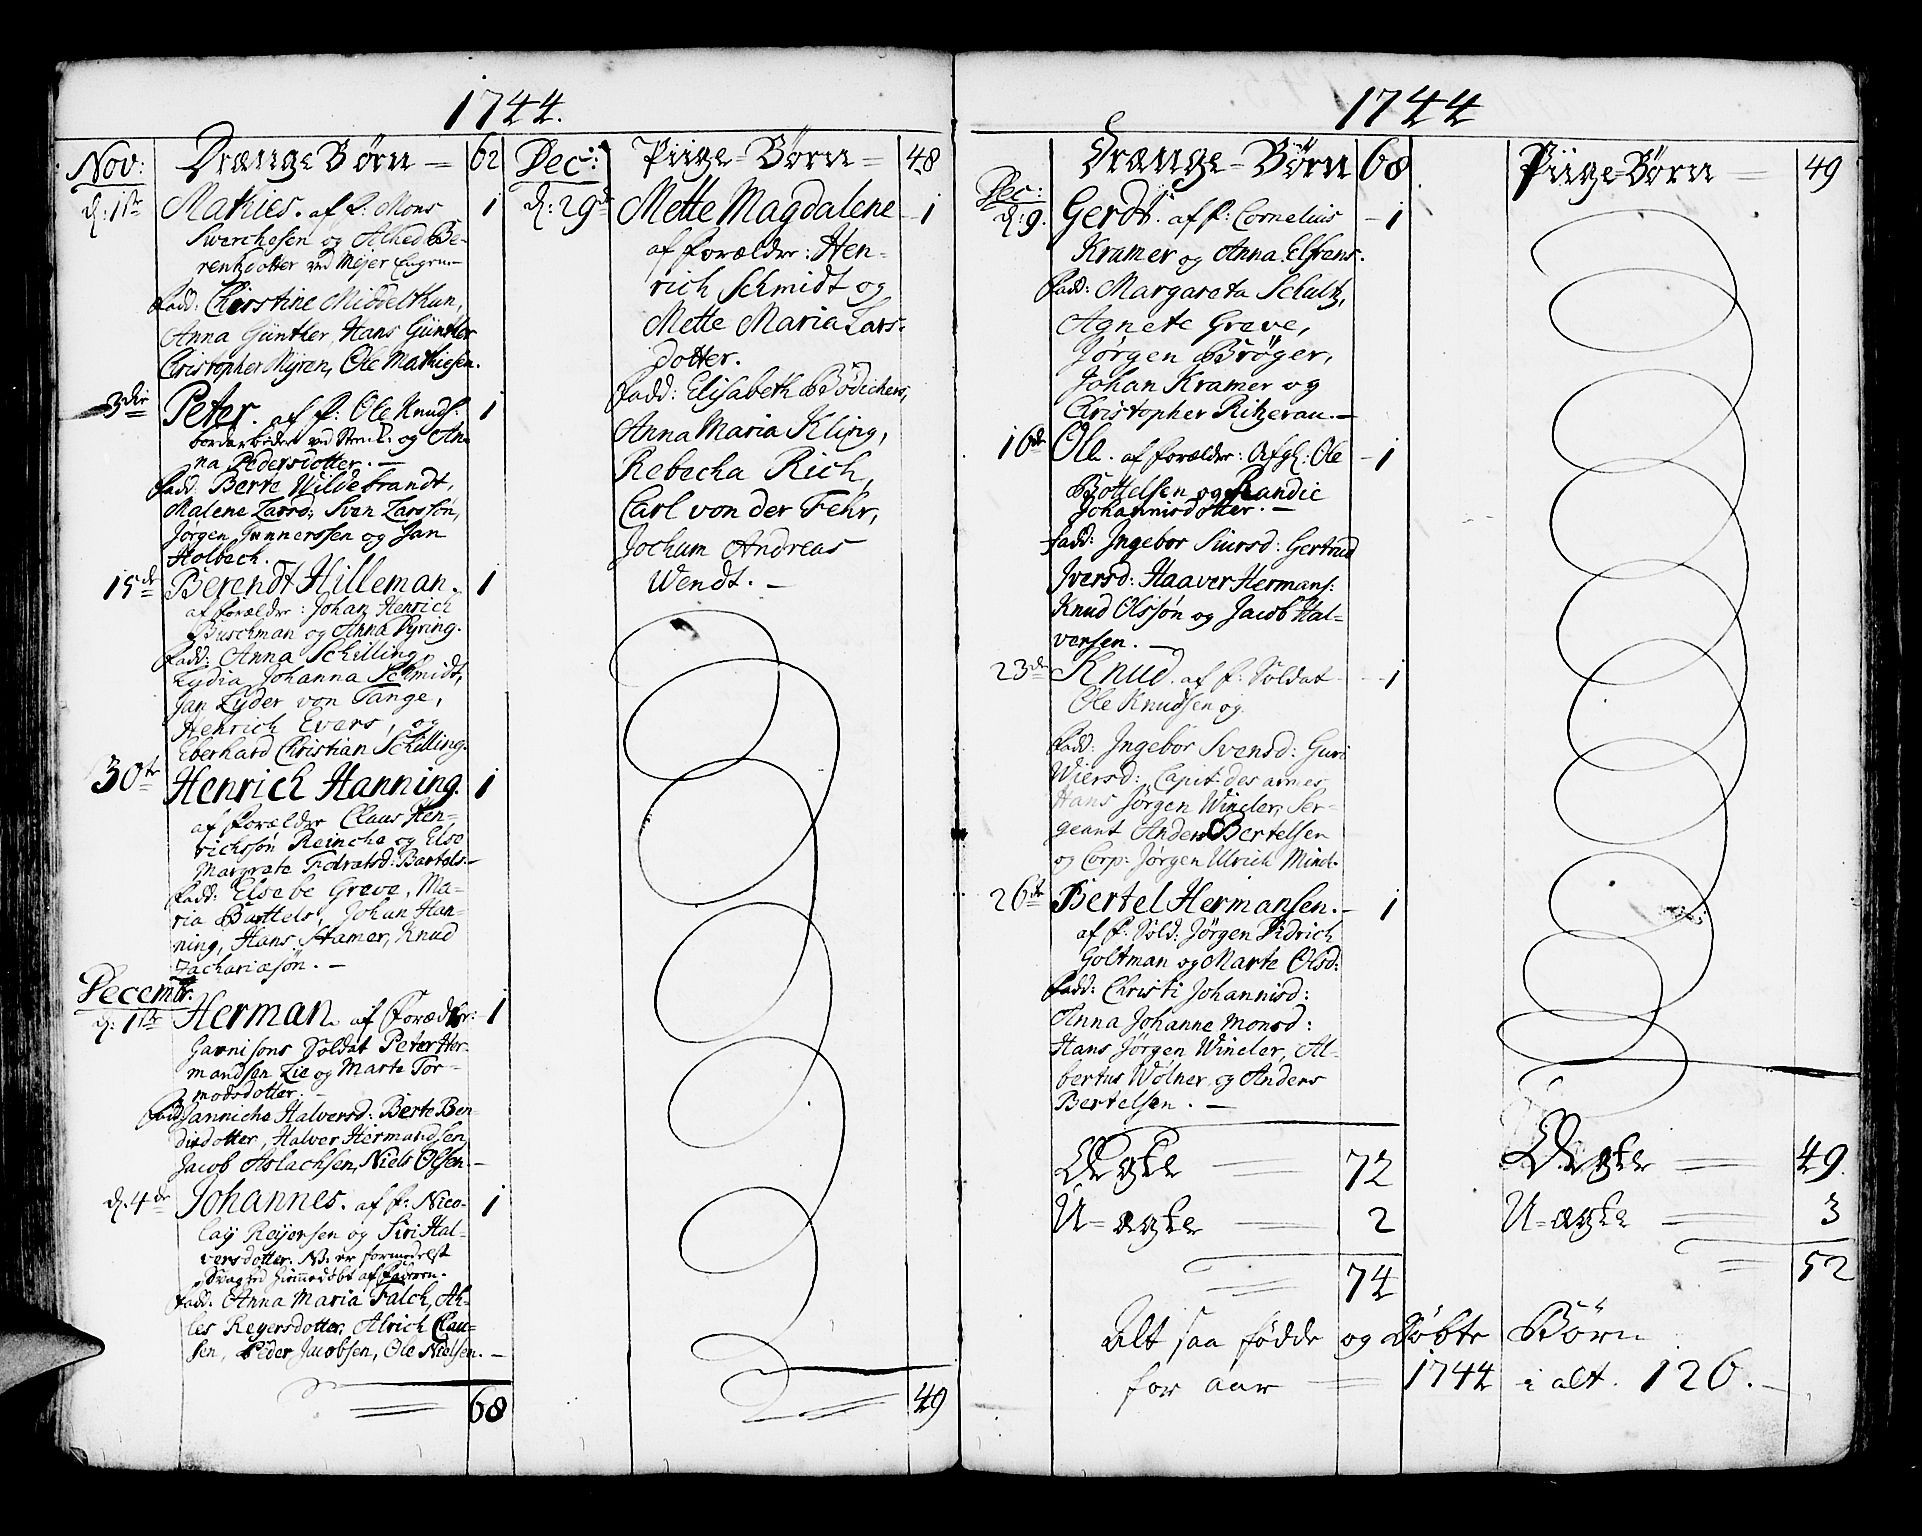 1744.
Nov: Drænge Børn = 62
d: 1ste Mathies. af f: Mons 1
Sverchesen og Alhed Be-
rentzdotter ved Meyer Engen-
fadd: Christine Middelthun,
Anna Güntler, Hans Güntler
Christopher Myren, Ole Mathiesen.
3die Peter. af f: Ole Knuds: 1
bordarbeider ved og An-
na Pedersdotter. —
fadd: Berte Wildebrandt,
Malene Larsd: Sven Larssøn,
Jørgen Gunnerssen og Jan
Holbech.
15de Berendt Hilleman. 1
af forældre: Johan Henrich
Buschman og Anna Pyring.
fadd: Anna Schilling,
Lydia Johanna Schmidt,
Jan Lyder von Tange,
Henrich Evers, og
Eberhard Christian Schilling.
30te Henrich Hanning. 1
af forældre Claus Hen-
richsøn Reincke og Else
Margrete Bartels. —
fadd: Elsebe Greve, Ma-
ria Bartels, Johan Han-
ning, Hans Stamer, Knud
Zachariæsøn. —
Decembr.
d: 1ste Herman. af forældre: 1
Garnisons Soldat Peter Her-
mandsen Lie og Marte Tor-
modsdotter. —
fadd: Janniche Halversd: Berte Ben-
disdotter, Halver Hermandsen,
Jacob Aslachsen, Niels Olsen. —
d. 4de Johannes. af f: Nico- 1
lay Reyersen og Siri Hal-
versdotter. NB. er formedelst
Svaghed hiemmedøbt af faderen.
fadd. Anna Maria Falch, Ah-
les Reyersdotter, Alrich Clau-
sen, Peder Jacobsen, Ole Nielsen. —
68
Dec: Piige-Børn = 48
d: 29de Mette Magdalene — 1
af forældre: Hen-
rich Schmidt og
Mette Maria Lars-
dotter.
fadd: Elisabeth Bødichers,
Anna Maria Kling,
Rebecha Rich,
Carl von der Fehr,
Jochum Andreas
Wendt. —
49
1744
Drænge-Børn 68
Dec:
d: 9. Gerdt. af f: Cornelius — 1
Kramer og Anna Elfrens.
fadd: Margareta Schultz,
Agnete Greve,
Jørgen Brøger,
Johan Kramer og
Christopher Ritzerau. —
16de Ole. af forældre: Afg: Ole — 1
Bottelsen og Randie
Johannisdotter. —
fadd: Ingebor Siursd: Gertrud
Iversd: Haaver Hermans:
Knud Olssøn og Jacob Hal-
versen. —
23de Knud. af f: Soldat — 1
Ole Knudsen og
fadd: Ingebor Svensd: Guri
Wiersd: Capit: des armes
Hans Jørgen Wincler, Ser-
geant Anders Bertelsen
og Corp: Jørgen Ulrich Mind.
26de Bertel Hermansen. — 1
af f: Sold: Jørgen Didrich
Goltman og Marte Olsd:
fadd: Christi Johannisd:
Anna Johanne Monsd:
Hans Jørgen Wincler, Al-
bertus Wølner og Anders
Bertelsen. —
Ægte = 72
U-ægte = 2
74
Piige-Børn — 49
Ægte = 49.
U-ægte = 3
52
Alt saa fødde og Døbte Børn
for aar = 1744 i alt. 126. —